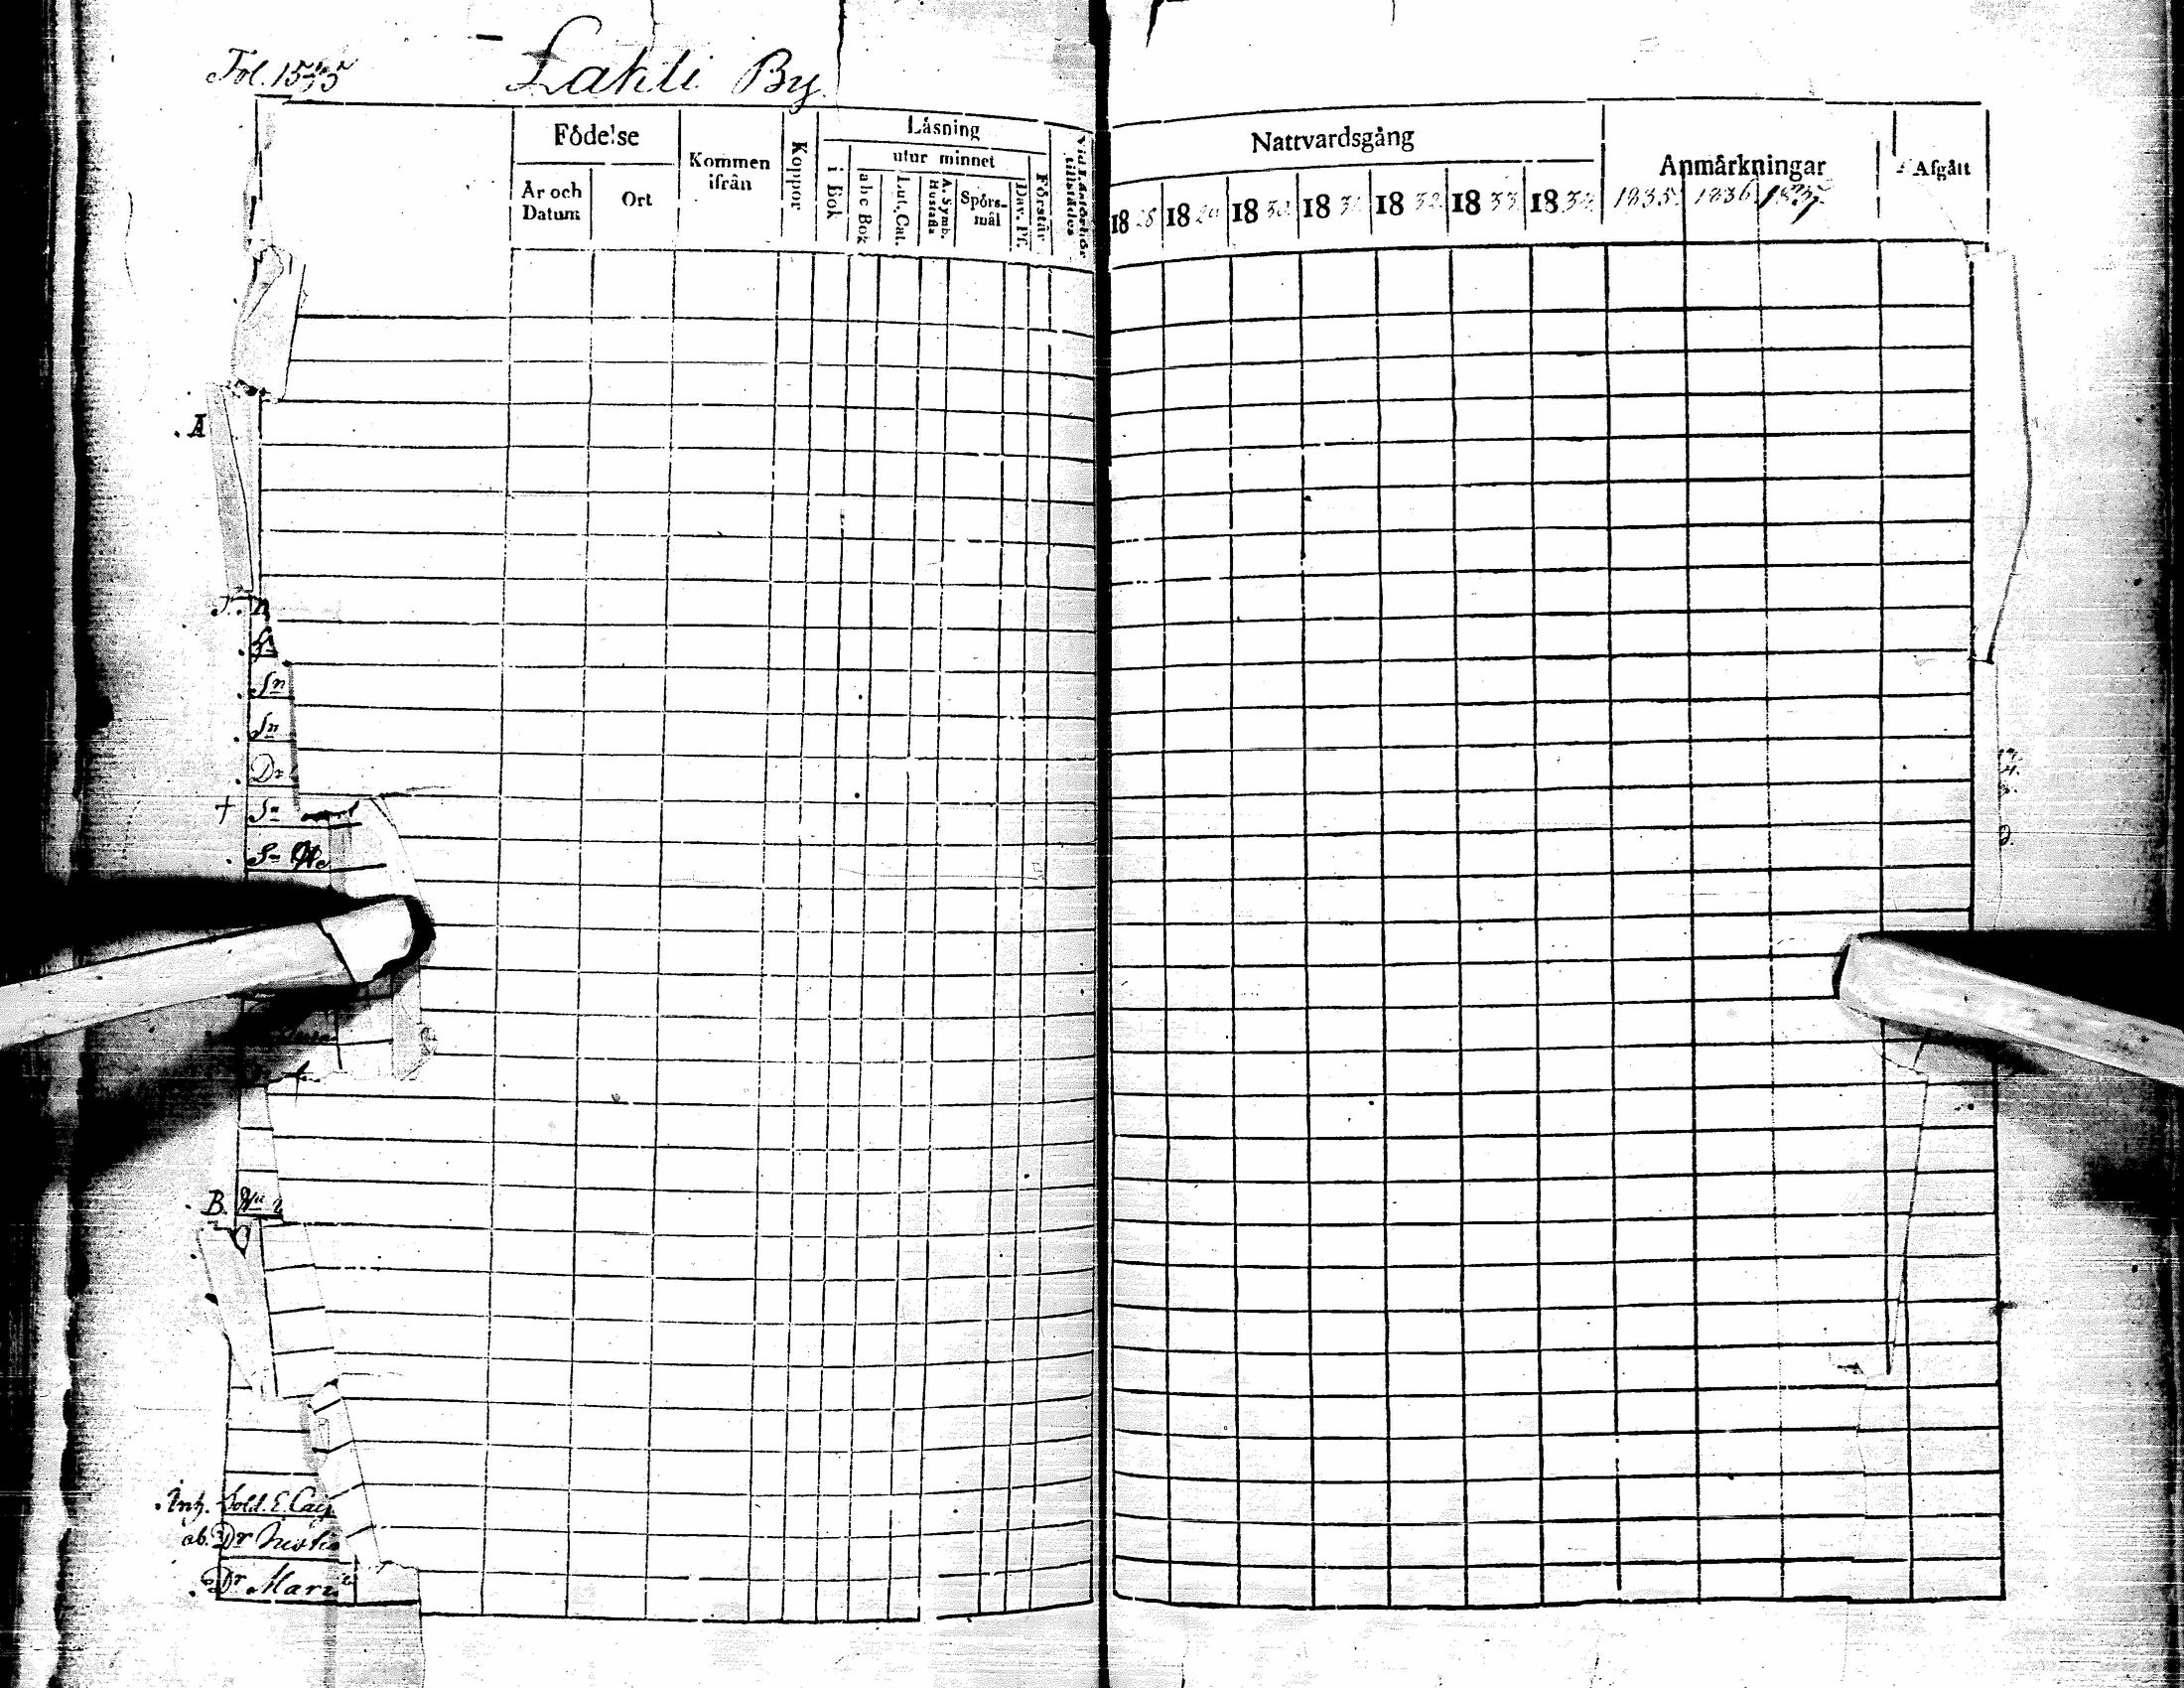 Lahti By.
Födelse
År och Datum
Ort
Kommen ifrån
Koppor
Läsning
i Bok
utur minnet
abc Bok
Lut. Cat.
A. Symb. Hustafla
Spörs-mål
Dav. Ps.
Förstår
Vid Läsförhör tillstädes
Nattvardsgång
1828 1829 1830 1831 1832 1833 1834
Anmärkningar
1835. 1836. 1837
Afgått
A
Sn
Sn
Dr
† Sn
Sn
B.
Inh. Sold. E. Caj
ob. Dr
Dr Mari